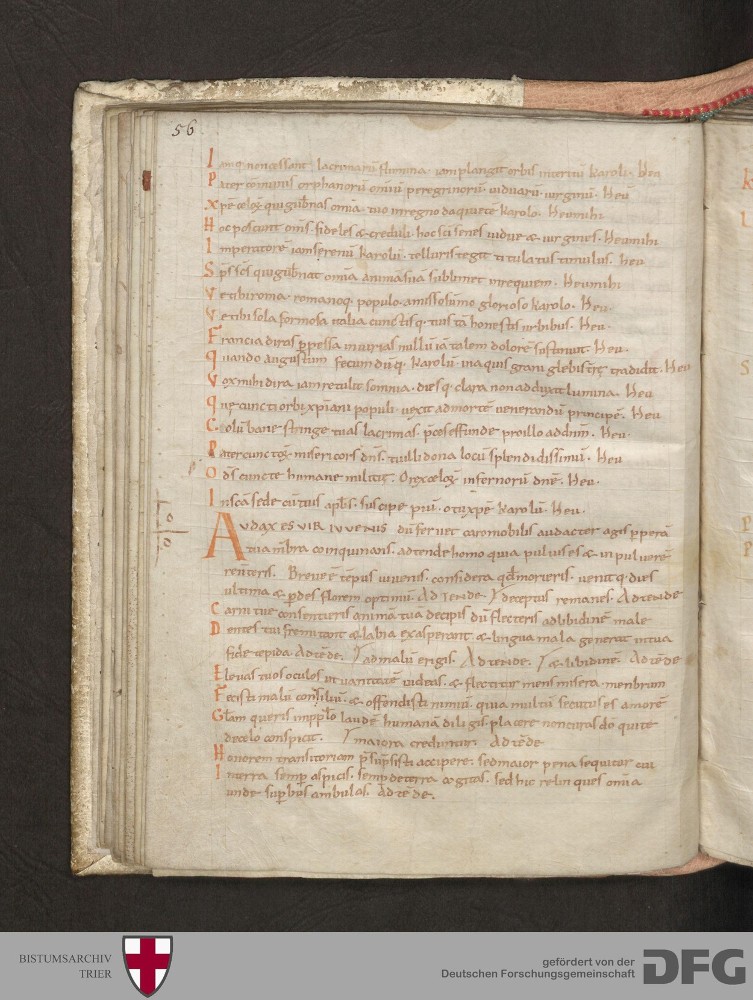 56
Iamq; non cessant lacrimarū flumina· iam plangit orbis interitū karoli· Heu
Pater cōmunis orphanorū omniū peregrinorū· viduarū· virginū· Heu
Xpē celoꝝ qui gubnas omīa· tuo in regno da quietē Karolo. Heu mihi
Hoc poscunt oms fideles & creduli· hoc sci senes vidue & virgines· Heu mihi
Imperatorē iam serenū karolū· telluris tegit titulatus tumulus. heu
Sps scs qui gubnat omīa animā suā sublimet in requiem. Heu mihi
Ve tibi roma· romanoq; populo· amisso sūmo glorioso karolo. Heu·
Ve tibi sola formosa italia cunctisq· tuis tā honestis urbibus. Heu·
Francia diras ꝑpessa iniurias nullū iā talem dolorē sustinuit· Heu·
Quando augustum facundūq· Karolū· in aquis grani glebis trę tradidit· Heu
Vox mihi dira iam retulit somnia· dies q· clara non adduxit lumina. Heu
Quę cuncti orbis xpiani populi vexit ad mortē venerandū principē. Heu
Colūbane stringe tuas lacrimas· p̄cos effunde pro illo ad dnm. Heu·
Pater cunctoꝝ misericors dns· ut illi dona locū splendidissimū. Heu
O ds cuncte humane militię. O rex celoꝝ infernorū dnē. Heu·
In scā sede cū tuis aplis· suscipe piū· o tu xpē karolū· Heu·
AUDAX ES VIR IUVENIS dū fervet caro mobilis audacter agis ꝑperā
tua mbra coinquinans. adtende homo quia pulvis es & in pulverē
rev̄teris. Breve ē tēpus iuvenis. considera qd morieris· venit q· dies
ultima & ꝑdes florem optimū. Adtende ℣ deceptus remanes. Adtende
Carni tue consentieris animā tuā decipis dū flecteris ad libidinē male
Dentes tui fremitant & labia exasperant· & lingua mala generat in tua
fide tepida. Adtēde. ℣ ad malū erigis. Adtende. ℣ & libidinē. Adtēde
Elevas tuos oculos ut vanitatē videas· & flectitur mens misera· menbrum
Fecisti malū consiliū· & offendisti nimiū· quia multū secutus es amorē
Glam queris in pplo laudē humanā diligis· placere non curas dō qui te
de celo conspicit. ℣ maiora creduntur. Adtēde
Honorem transitoriom p̄sūpsisti accipere· sed maior pena sequitur cui
In terra semꝑ aspicis. semꝑ de terra cogitas. sed hic relinques omīa
unde suꝑbus ambulas. Adtēde.
BISTUMSARCHIV
TRIER
gefördert von der
Deutschen Forschungsgemeinschaft
DFG